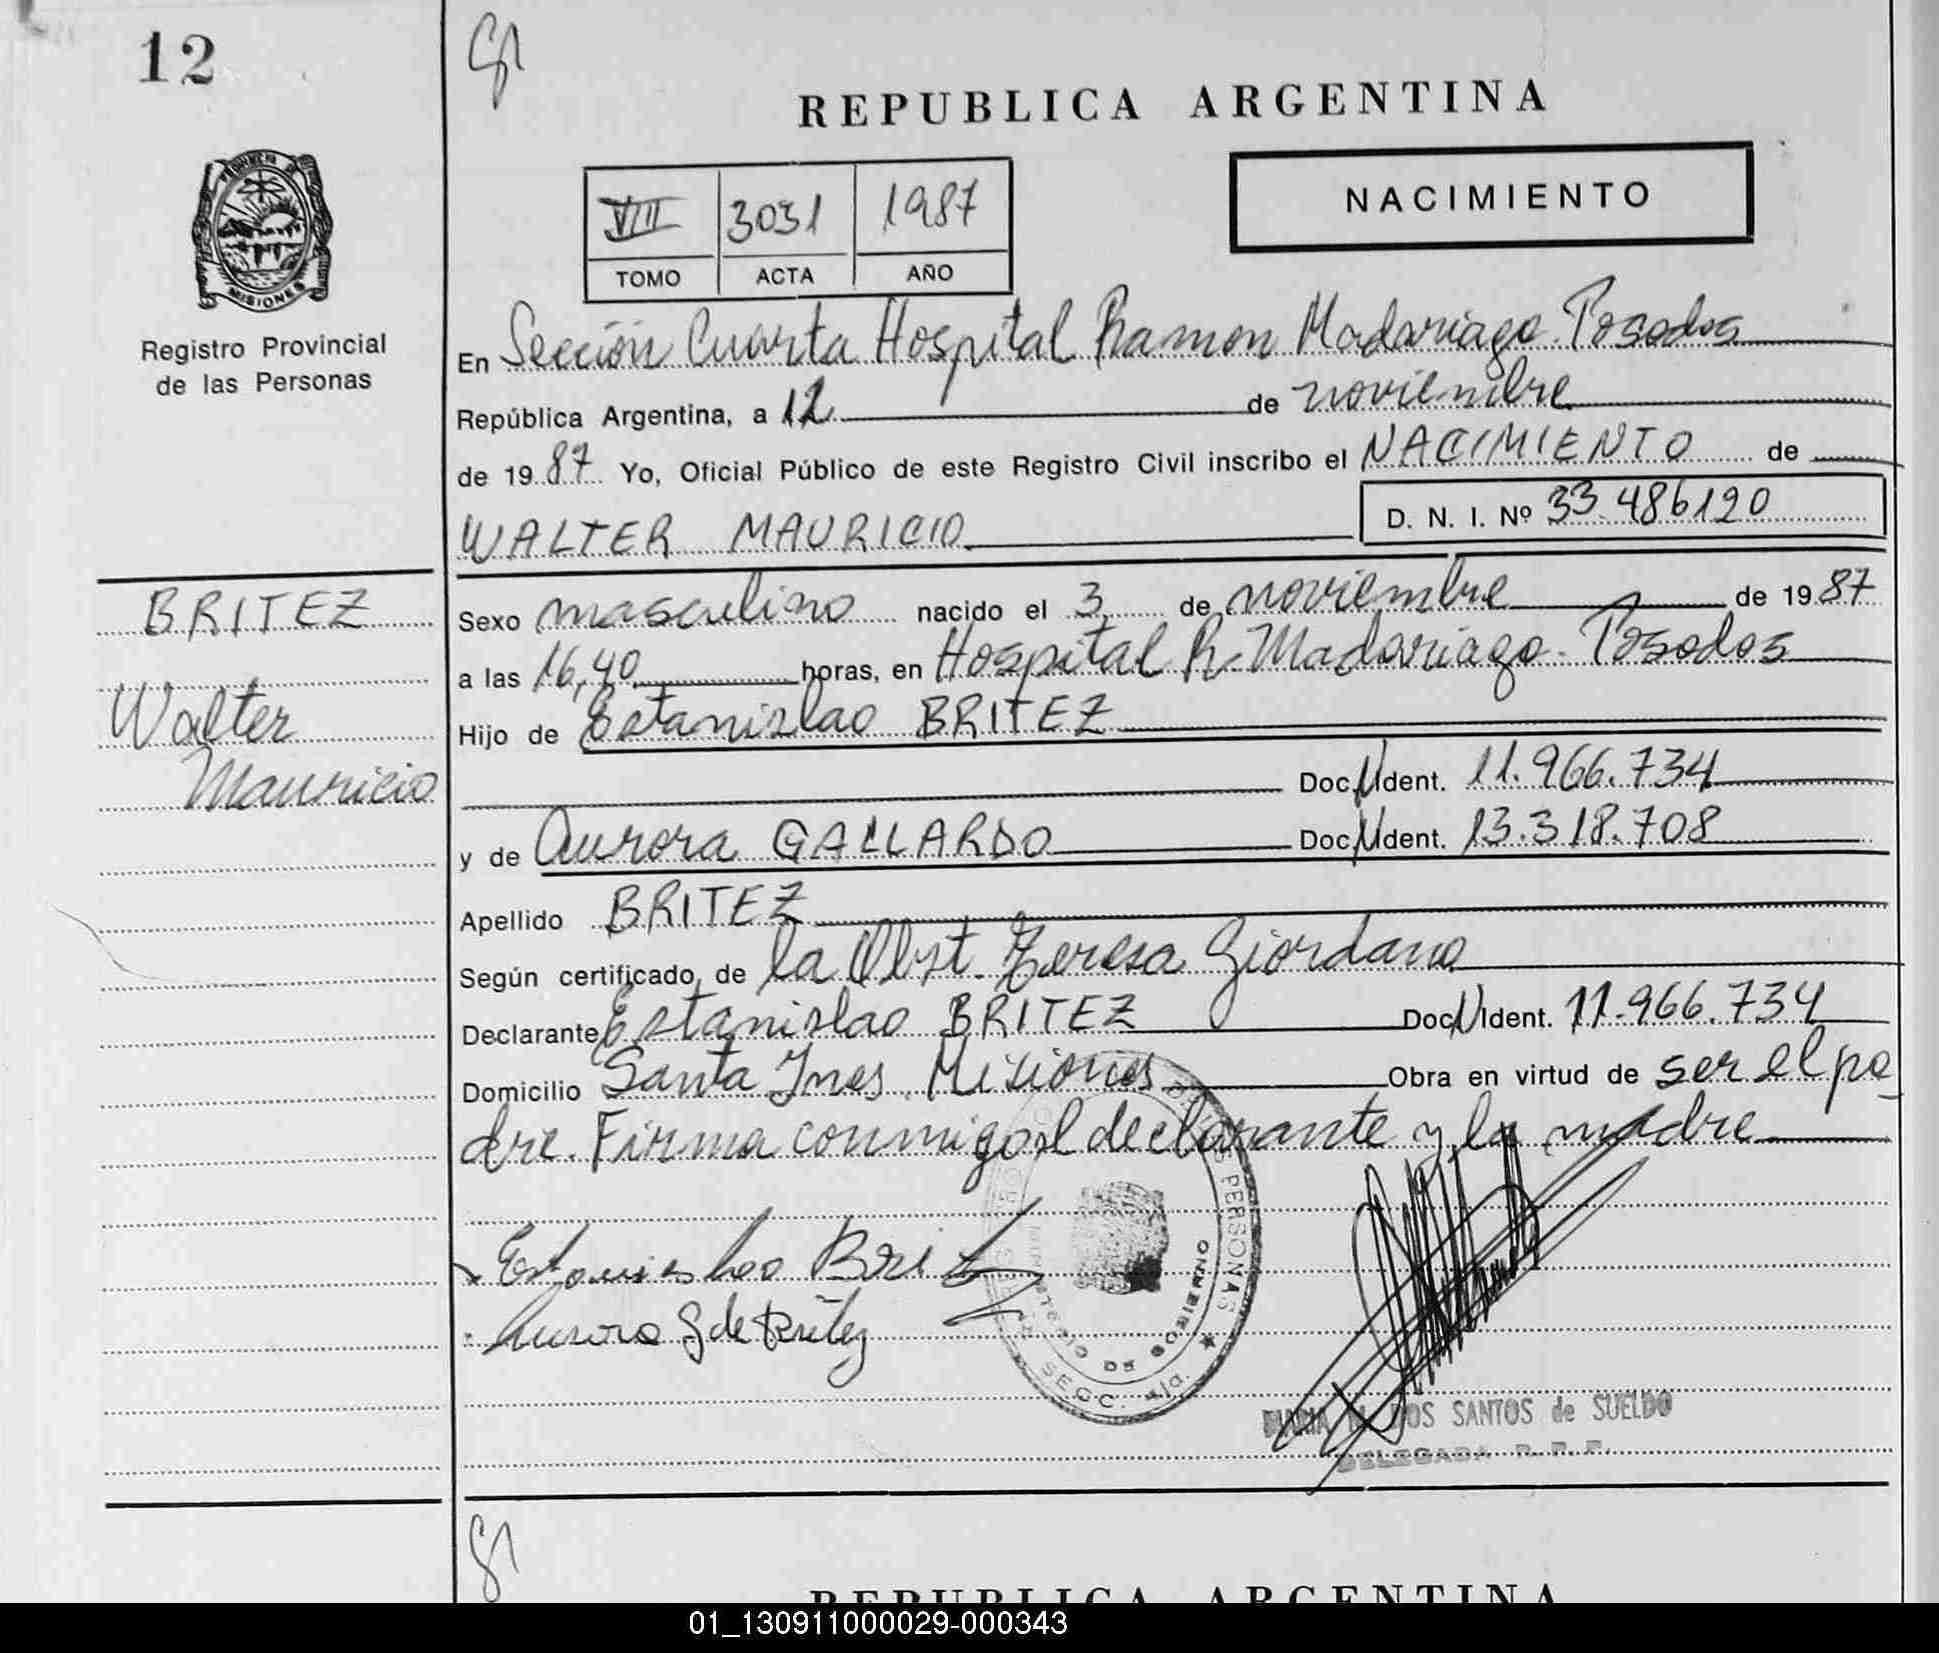 12
REPUBLICA ARGENTINA
NACIMIENTO
VIII 3031 1987
TOMO ACTA AÑO
PROVINCIA DE MISIONES
Registro Provincial
de las Personas
En Sección Cuarta Hospital Ramon Madariaga. Posadas
República Argentina, a 12 de noviembre
de 1987 Yo, Oficial Público de este Registro Civil inscribo el NACIMIENTO de
D. N. I. Nº 33.486120
WALTER MAURICIO
BRITEZ
Walter
Mauricio
Sexo masculino nacido el 3 de noviembre de 1987
a las 16,40 horas, en Hospital R. Madariaga. Posadas
Hijo de Estanislao BRITEZ
Doc. N Ident. 11.966.734
y de Aurora GALLARDO Doc. N Ident. 13.318.708
Apellido BRITEZ
Según certificado de la Obst. Teresa Giordano
Declarante Estanislao BRITEZ Doc. N Ident. 11.966.734
Domicilio Santa Ines. Misiones Obra en virtud de ser el pa-
dre. Firma conmigo el declarante y la madre
Estanieslao Britez
Aurora G de Britez
PERSONAS ★
MINISTERIO DE GOBIERNO
SECC. 4ta.
MARIA DOS SANTOS de SUELDO
DELEGADA R.P.P.
REPUBLICA ARGENTINA
01_130911000029-000343